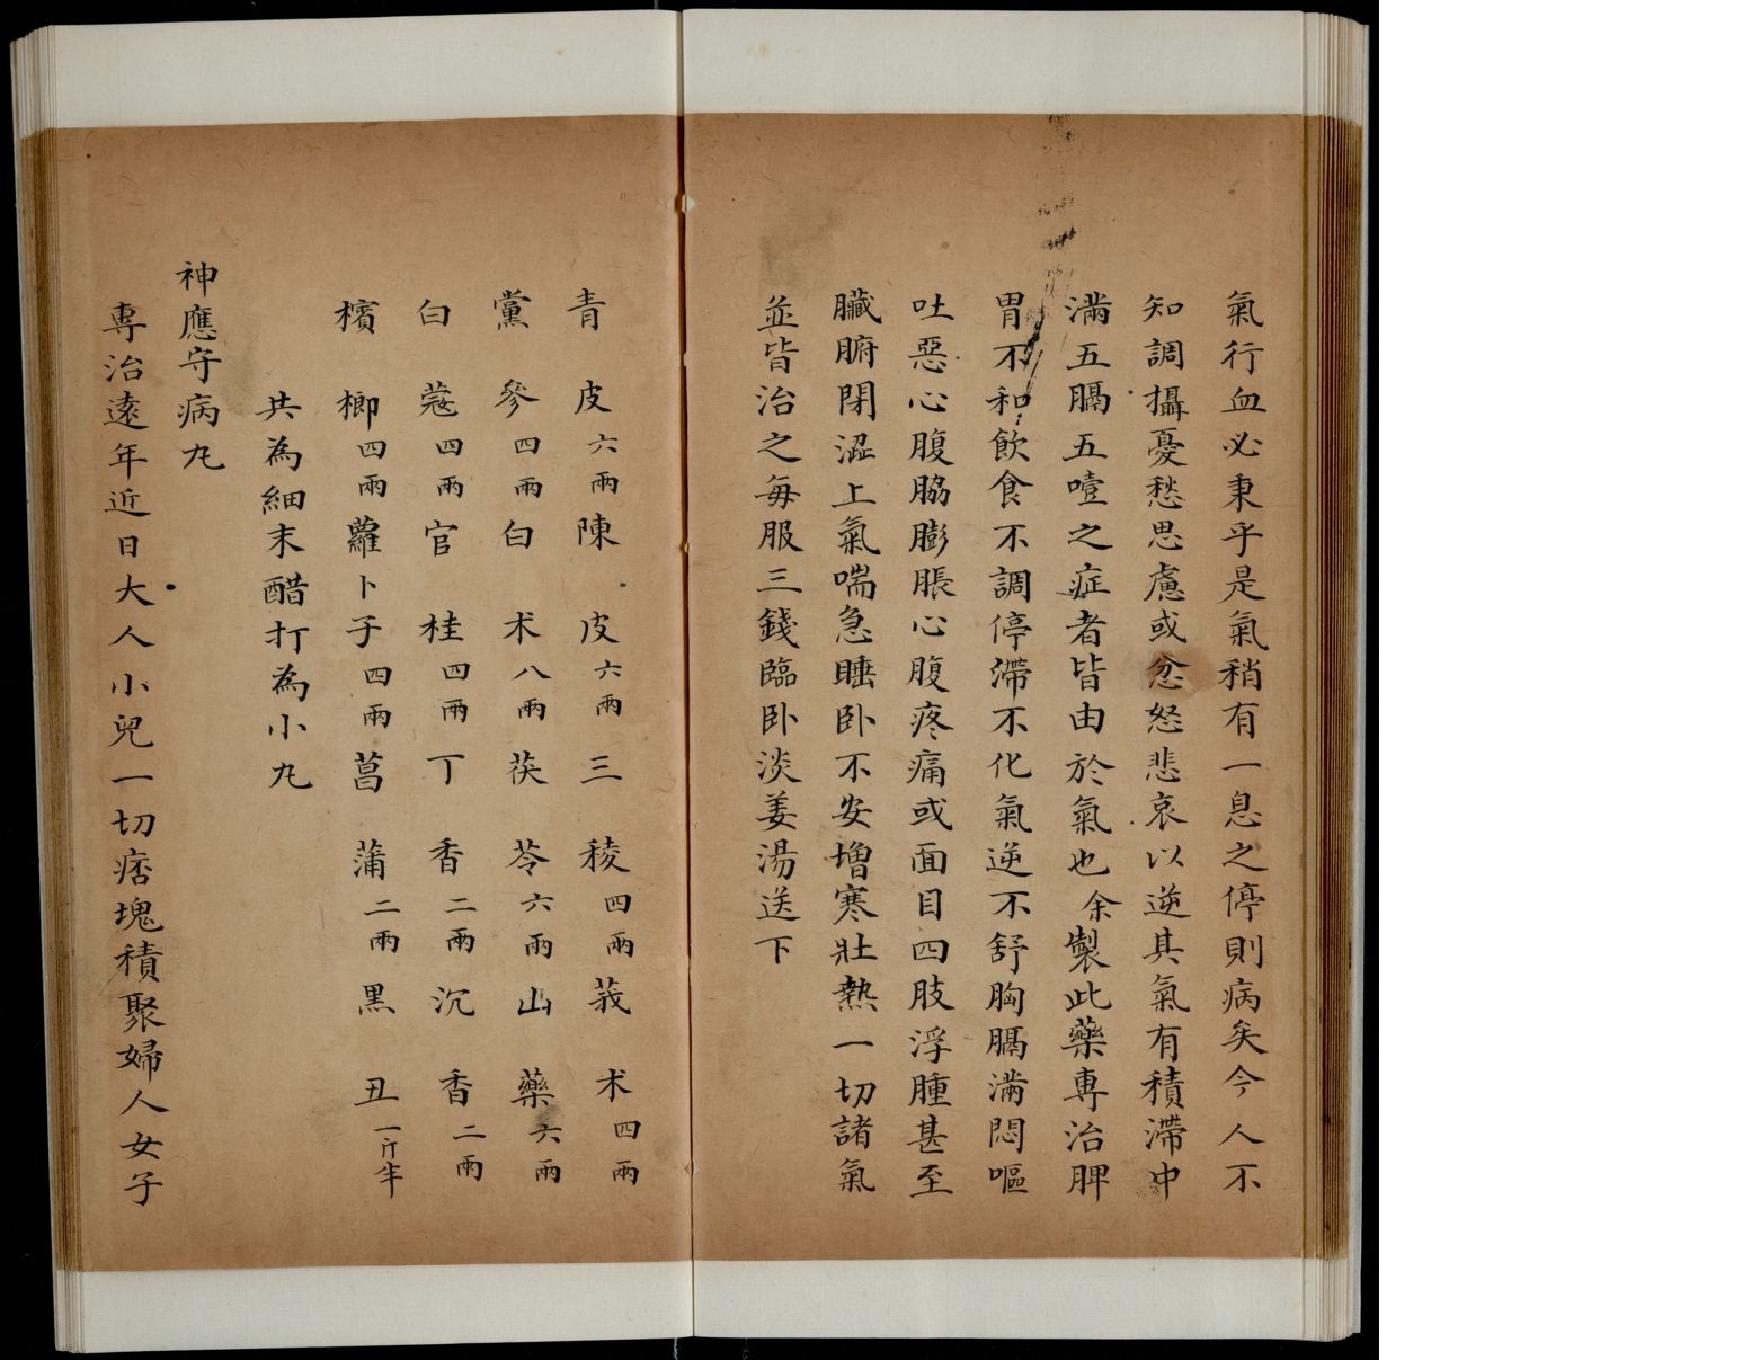 氣行血必秉乎是氣稍有一息之停則病矣今人不
知調攝憂愁思慮或忿怒悲哀以逆其氣有積滯中
滿五膈五噎之症者皆由於氣也余製此藥專治脾
胃不和飲食不調停滯不化氣逆不舒胸膈滿悶嘔
吐惡心腹脇膨脹心腹疼痛或面目四肢浮腫甚至
臟腑閉澀上氣喘急睡卧不安增寒壯熱一切諸氣
並皆治之每服三錢臨卧淡姜湯送下
青皮六兩陳皮六兩三稜四兩莪术四兩
黨參四兩白术八兩茯苓六兩山藥六兩
白蔻四兩官桂四兩丁香二兩沉香二兩
檳榔四兩蘿卜子四兩菖蒲二兩黑丑一斤半
共為細末醋打為小丸
神應守病丸
專治遠年近日大人小兒一切痞塊積聚婦人女子